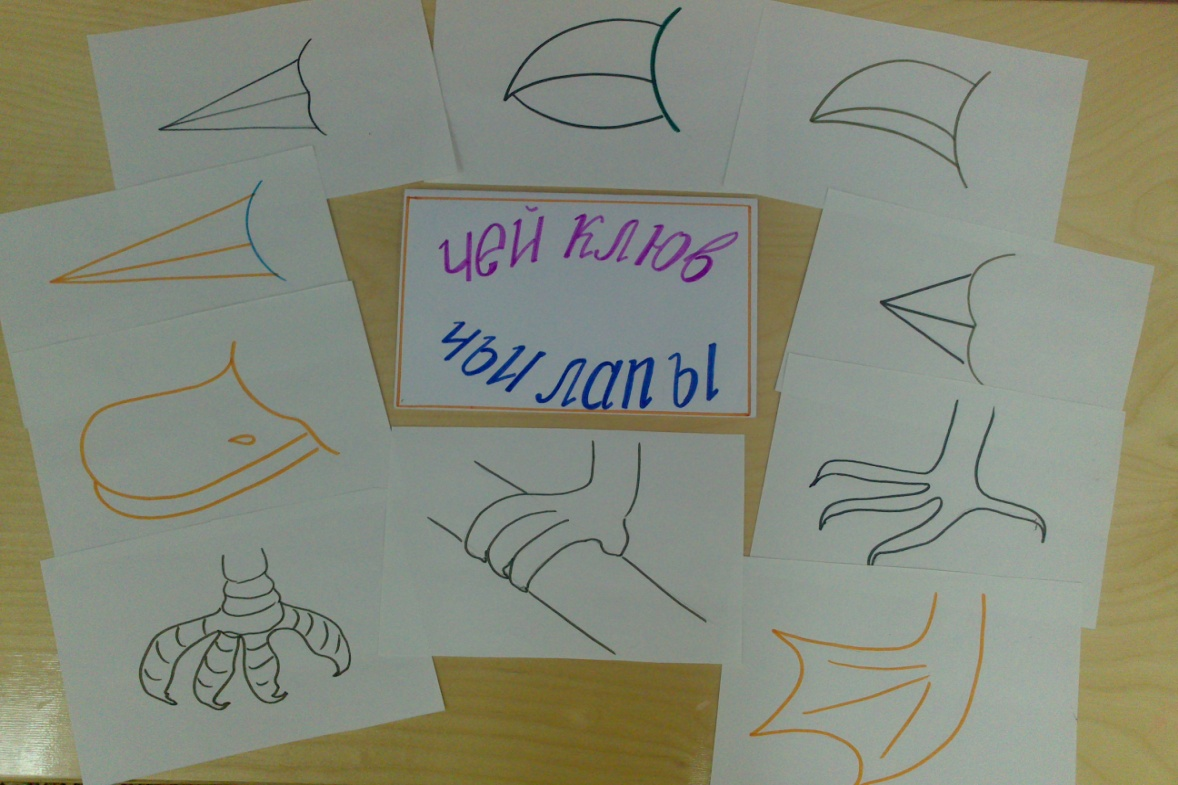 чей клюв
чьи лапы